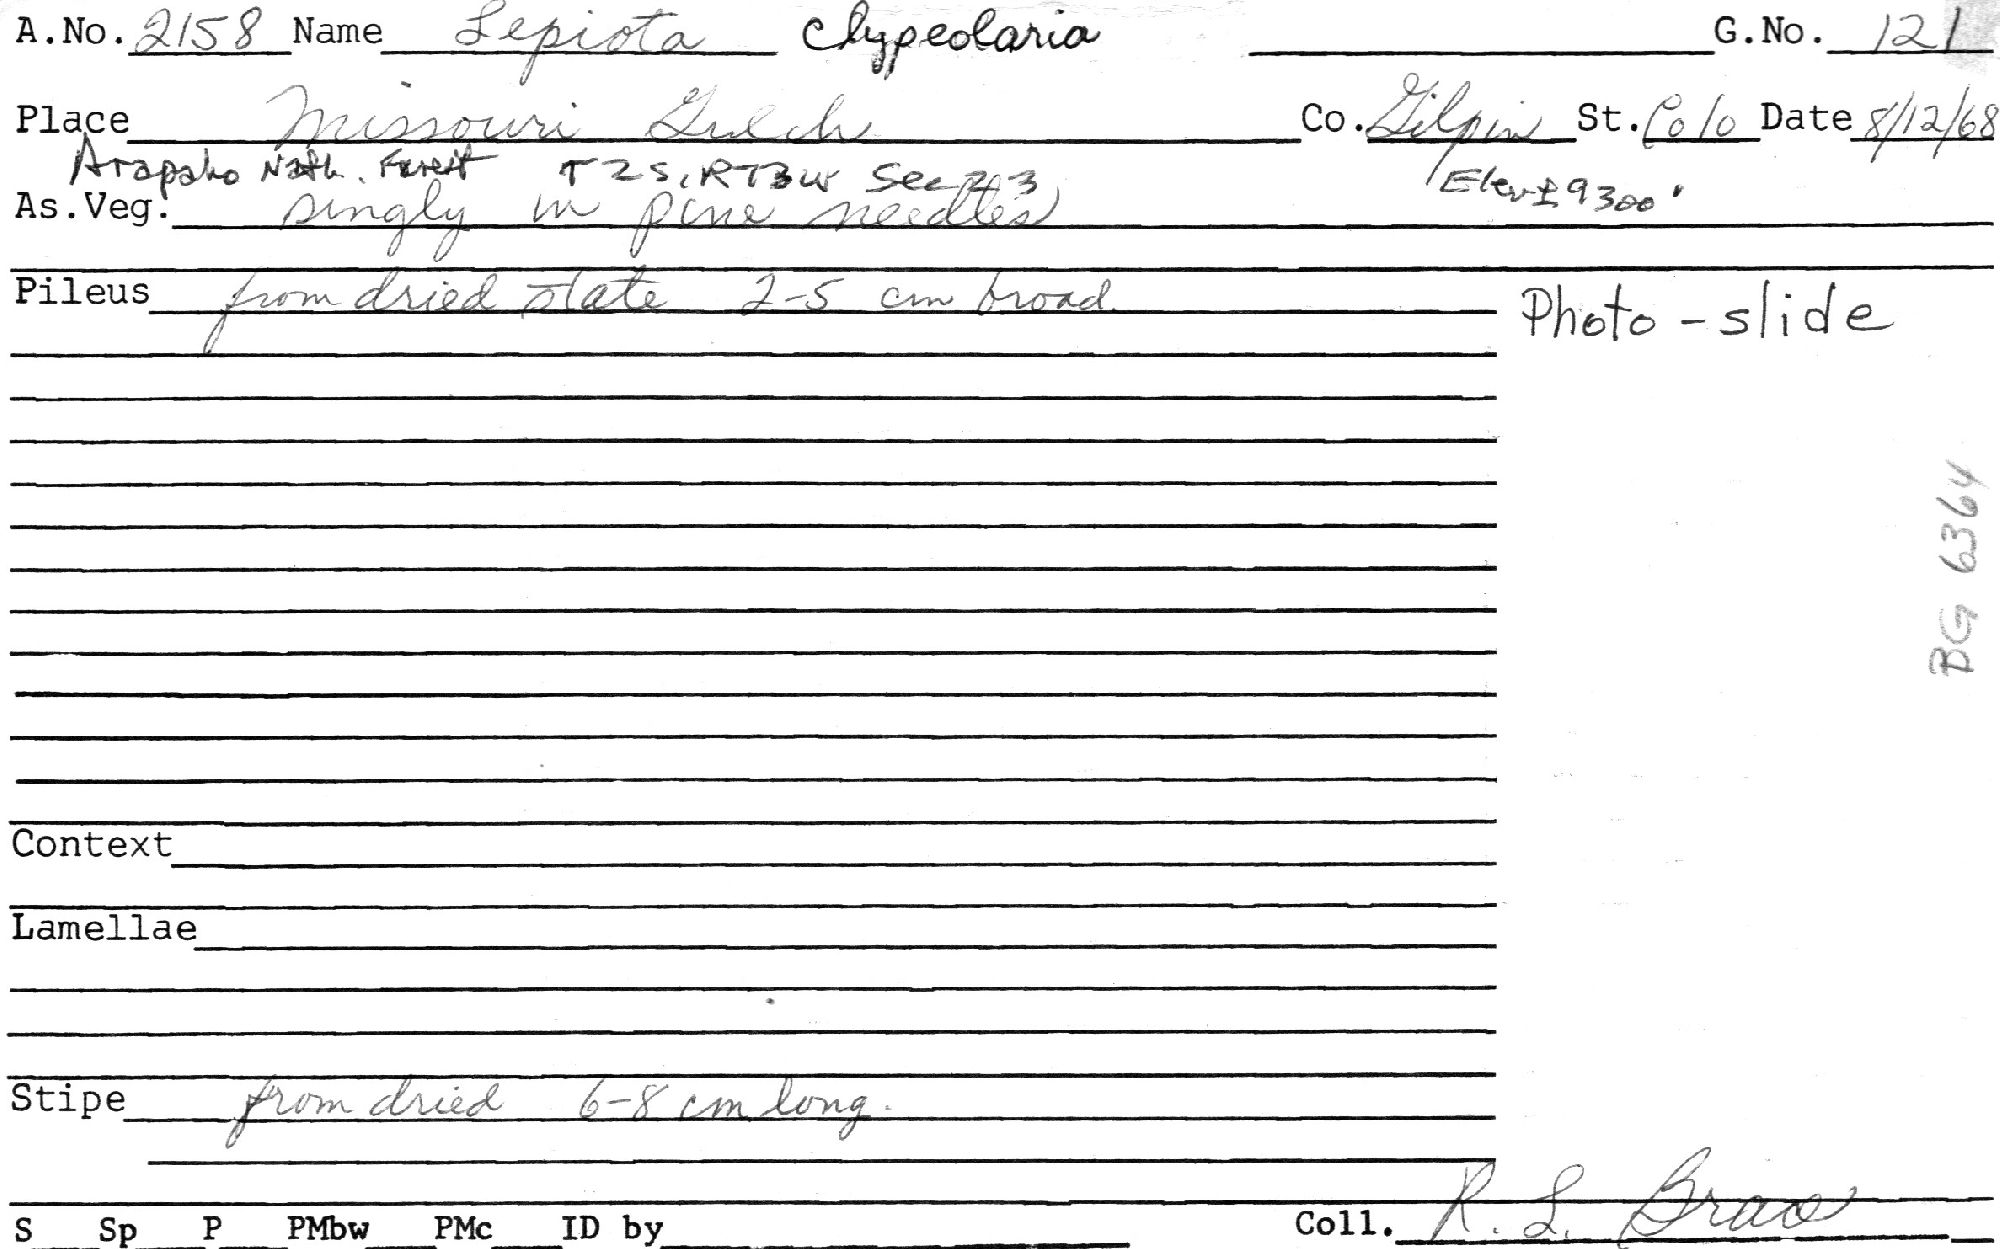 A.No. 2158 Name Lepiota clypeolaria G.No. 121
Place Missouri Gulch Co. Gilpin St. Colo Date 8/12/68
Arapaho Natl. Forest T2S, R73W Sec 23 Elev ± 9300'
As.Veg. singly in pine needles
Pileus from dried state 2-5 cm broad
Photo - slide
BG 6364
Context
Lamellae
Stipe from dried 6-8 cm long.
S Sp P PMbw PMc ID by Coll. R. L.